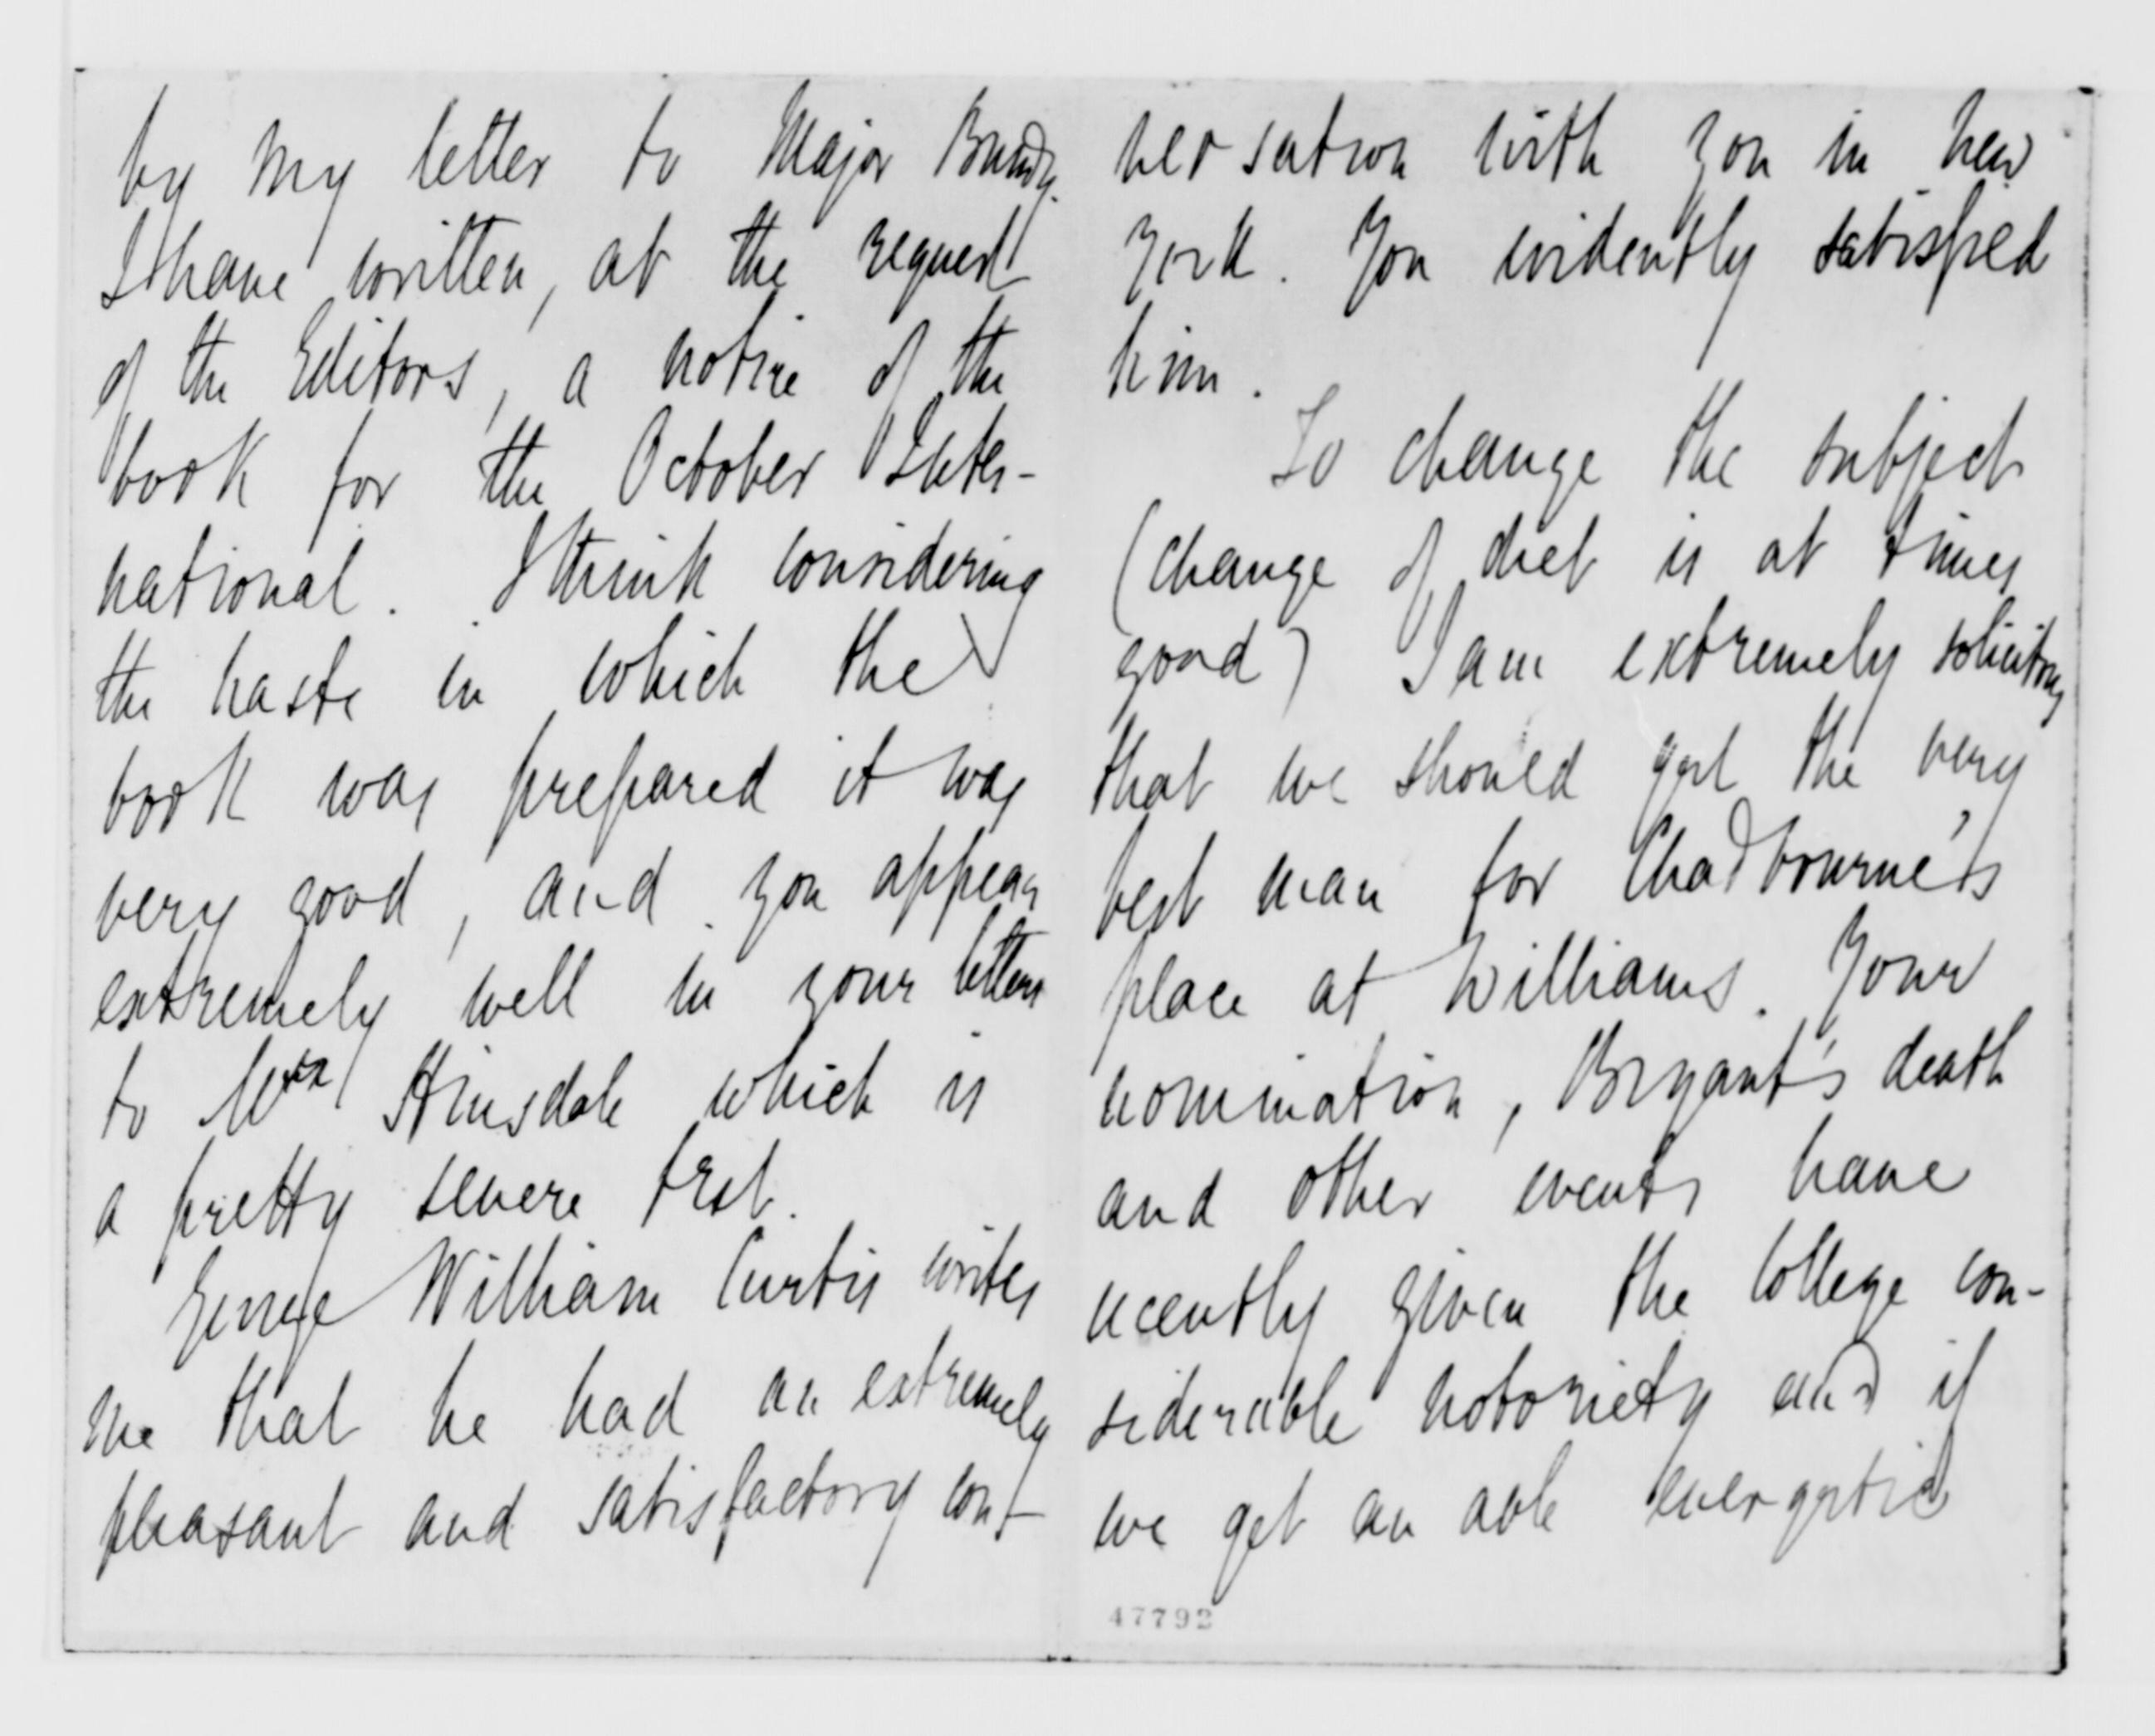 by my letter to Major Bundy.
I have written, at the request
of the Editors, a notice of the
book for the October Inter-
national. I think considering
the haste in which the
book was prepared it was
very good, and you appear
extremely well in your letters
to Mrs Hinsdale which is
a pretty severe test.
George William Curtis writes
me that he had an extremely
pleasant and satisfactory con-
versation with you in New
York. You evidently satisfied
him.
To change the subject
(change of diet is at times
good) I am extremely solicitous
that we should get the very
best man for Chadbourne's
place at Williams. Your
nomination, Bryant's death
and other events have
recently given the College con-
siderable notoriety and if
we get an able energetic
47792